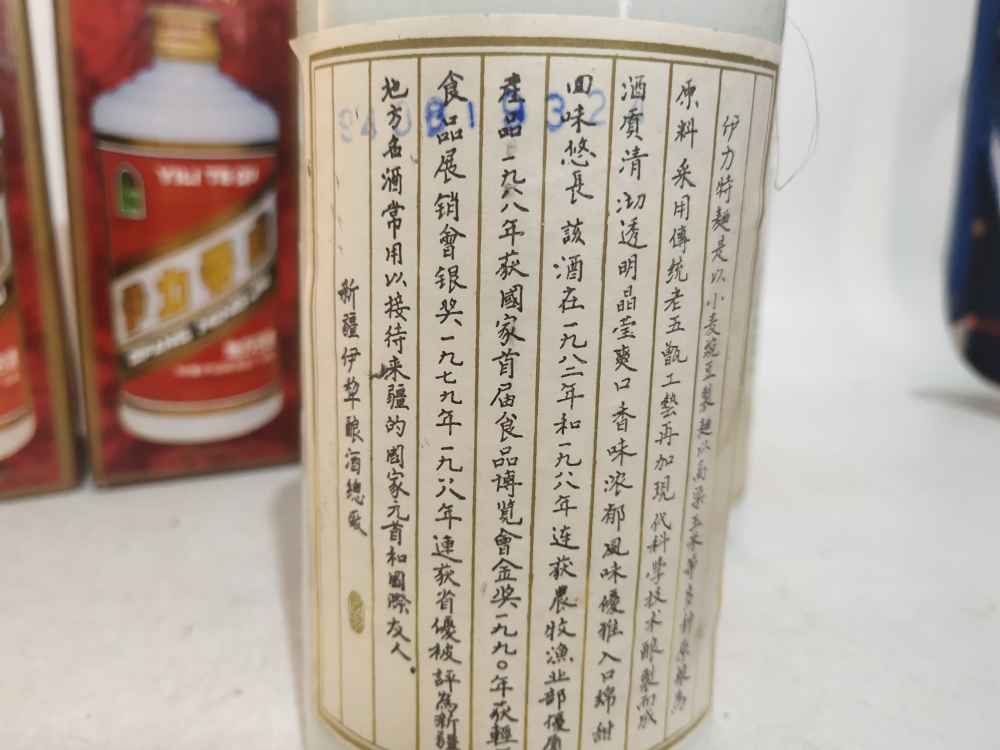 伊力特麯是以小麦豌豆製麯以高粱玉米等
原料 采用傳统老五甑工藝再加現代科学技术酿製而成
酒質清沏透明晶莹爽口香味浓郁風味優雅入口綿甜
回味悠長 該酒在一九八二年和一九八八年连获農牧渔业部優質
産品 一九八八年获國家首届食品博覧會金奖一九九〇年获輕
食品展销會银奖 一九七九年一九八八年連获省優被評為新疆
地方名酒常用以接待来疆的國家元首和國際友人。
新疆伊犂酿酒總厰